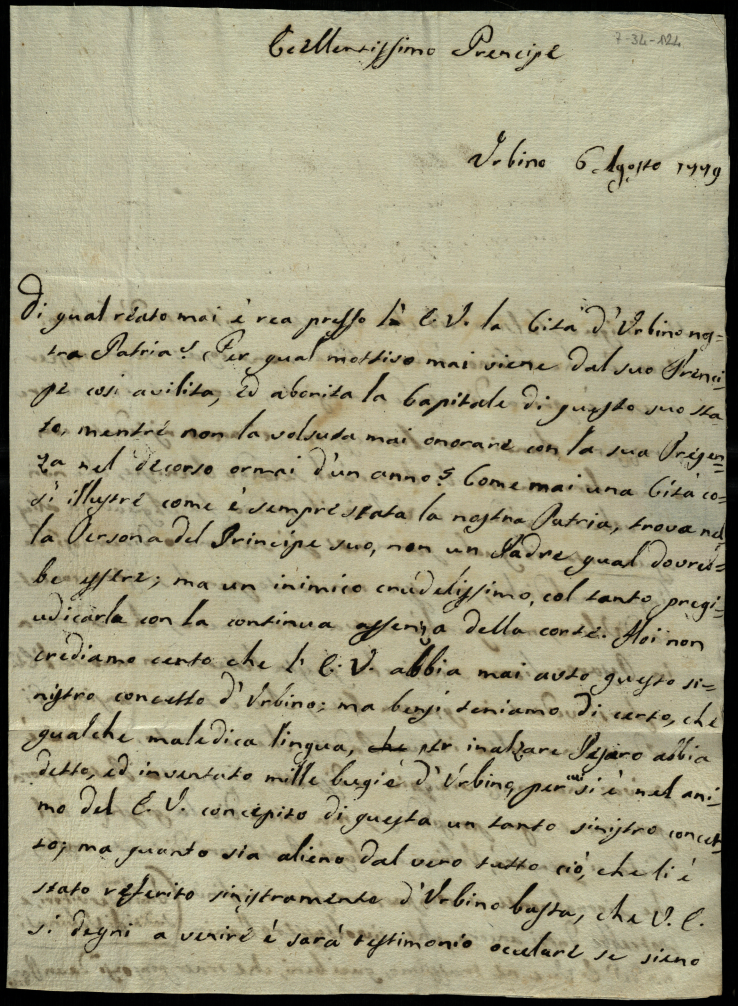 7-34-124
Eccellentissimo Prencipe
Urbino 6 Agosto 1779
Di qual reato mai è rea presso là E. V. la Città d'Urbino nos=
tra Patria? Per qual mottivo mai viene dal suo Prenci=
pe così avilita, ed aborita la Capitale di questo suo sta=
to, mentre non la volsuta mai onorare con la sua Presen=
za nel decorso ormai d'un anno? Come mai una Cità co=
sì illustre come è sempre stata la nostra Patria, trova nel=
la Persona del Principe suo, non un Padre qual dovreb=
be essere; ma un inimico crudelissimo, col tanto pregi=
udicarla con la continua assenza della corte. Noi non
crediamo certo che l'E. V. abbia mai auto questo si=
nistro concetto d'Urbino; ma bensì teniamo di certo, che
qualche maledica lingua, che per inalzare Pesaro abbia
detto, ed inventato mille bugie d'Urbino, per cui si è nel ani=
mo del E. V. concepito di questa un tanto sinistro concet=
to; ma quanto sia alieno dal vero tutto ciò, che li è
stato referito sinistramente d'Urbino basta, che V. E.
si degni a venire è sarà testimonio oculare se sieno